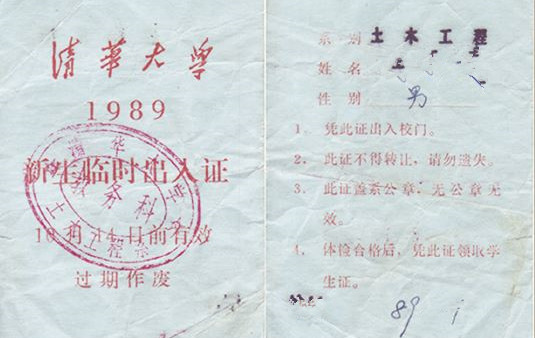 清华大学
1989
新生临时出入证
10月14日前有效
过期作废
教务科
土木工程系
系别 土木工程
姓名
性别 男
1、凭此证出入校门。
2、此证不得转让，请勿遗失。
3、此证盖系公章，无公章无
效。
4、体检合格后，凭此证领取学
生证。
89